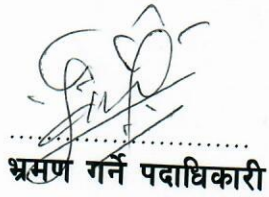 ..........................................
भ्रमण गर्ने पदाधिकारी